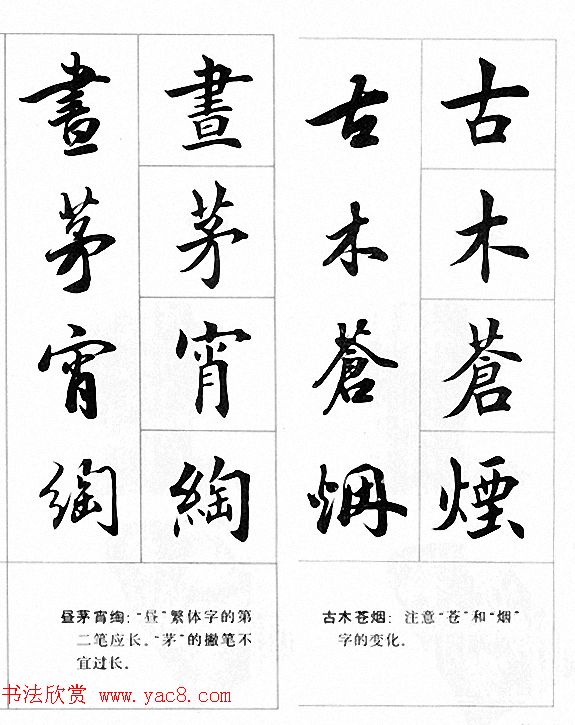 古木蒼煙
古木蒼煙
古木苍烟：注意“苍”和“烟”
字的变化。
晝茅宵綯
晝茅宵綯
昼茅宵绹：“昼”繁体字的第
二笔应长。“茅”的撇笔不
宜过长。
书法欣赏 www.yac8.com